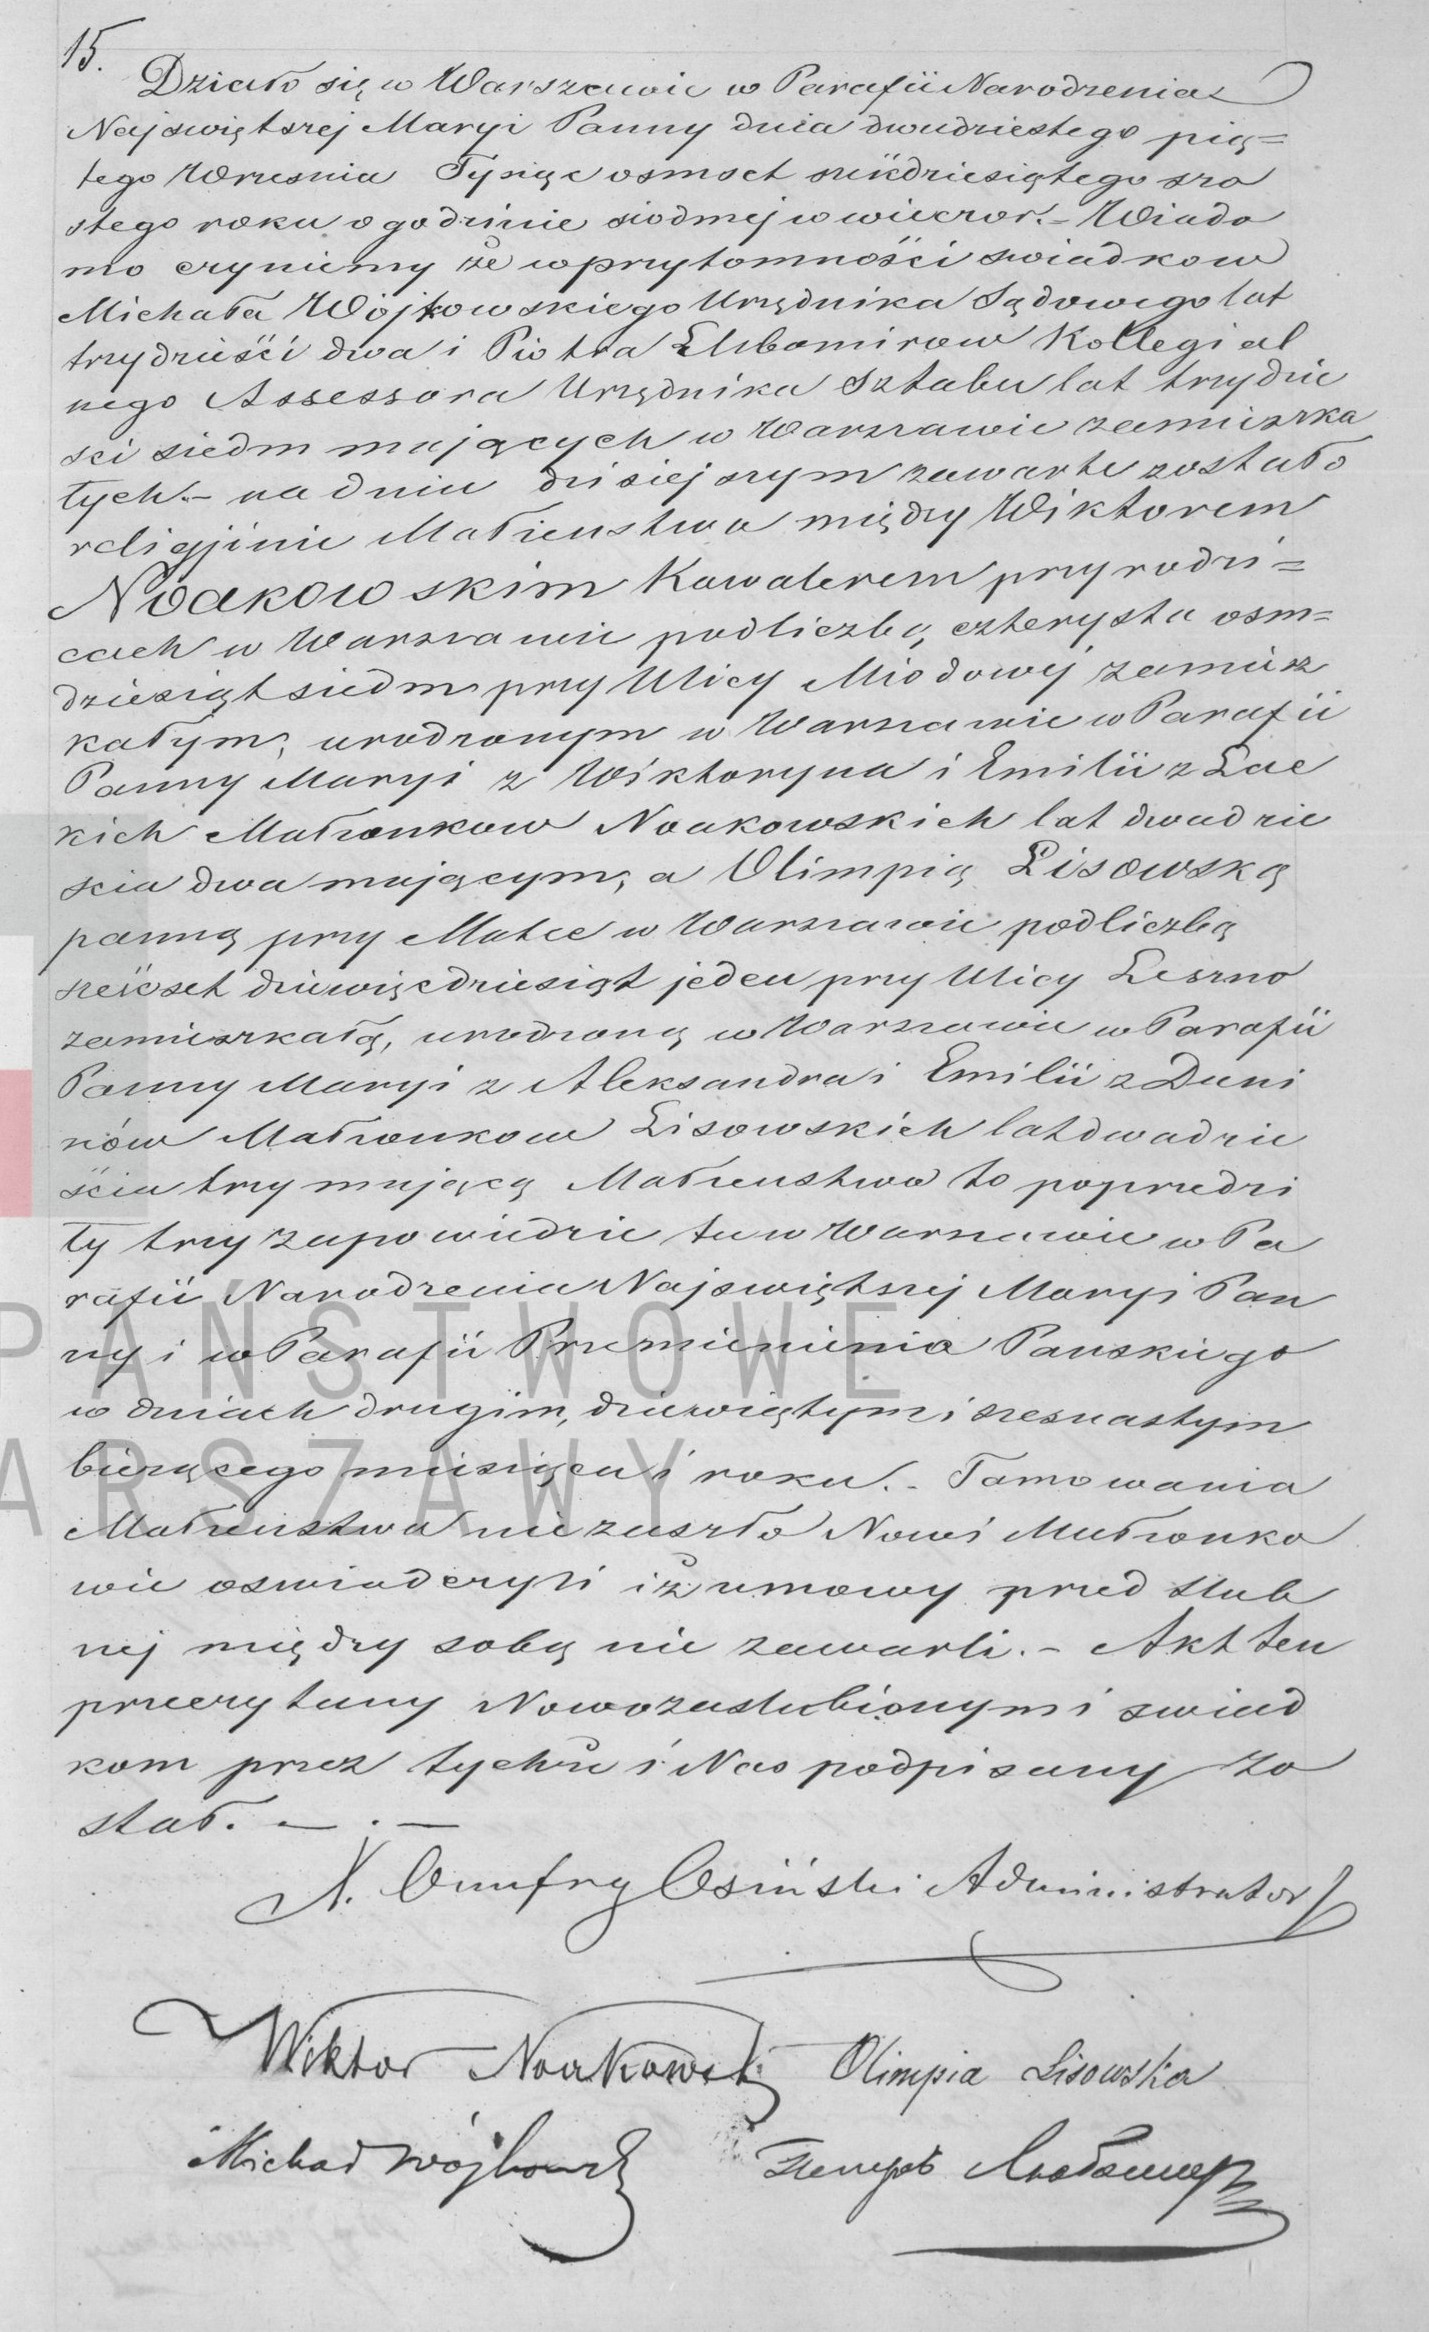 15.
Działo się w Warszawie w Parafii Narodzenia
Najswiętszej Maryi Panny dnia dwudziestego pią=
tego Wrzesnia Tysiąc osmset sześćdziesiątego szo
stego roku o godzinie siodmej w wieczor. – Wiado
mo czyniemy że w przytomności swiadkow
Michała Wójtowskiego Urzędnika Sądowego lat
trzydzieści dwa i Piotra Lubomirow Kollegial
nego Assessora Urzędnika Sztabu lat trzydzie
sci siedm mających w Warszawie zamieszka
łych – na dniu dzisiejszym zawarte zostało
religijinie Małżenstwo między Wiktorem
Noakowskim Kawalerem przy rodzi=
cach w Warszawie pod liczbą czterysta osm=
dziesiąt siedm przy Ulicy Miodowej zamiesz
kałym, urodzonym w Warszawie w Parafii
Panny Maryi z Wiktoryna i Emilii z Lac
kich Małżonkow Noakowskich lat dwadzie
scia dwa mającym, a Olimpią Lisowską
panną przy Matce w Warszawie pod liczbą
sześćset dziewięcdziesiąt jeden przy Ulicy Leszno
zamieszkałą, urodzoną w Warszawie w Parafii
Panny Maryi z Aleksandra i Emilii z Duni
nów Małżonkow Lisowskich lat dwadzie
ścia trzy mającą Małżenstwo to poprzedzi
ły trzy zapowiedzie tu w Warszawie w Pa
rafii Narodzenia Najswiętszej Maryi Pan
ny i w Parafii Przemienienia Panskiego
w dniach drugim, dziewiątym i szesnastym
bierzącego miesiąca i roku. – Tamowania
Małżenstwa nie zaszło Nowi Małżonko
wie oswiadczyli iż umowy przed slub
nej między sobą nie zawarli. – Akt ten
przeczytany Nowozaslubionym i swiad
kom przez tychże i Nas podpisany zo
stał. – . –
X. Onufry Osiński Administrator
Wiktor Noakowski Olimpia Lisowska
Michał Wójtowski Петръ Любомир
PAŃSTWOWE
ARSZAWY